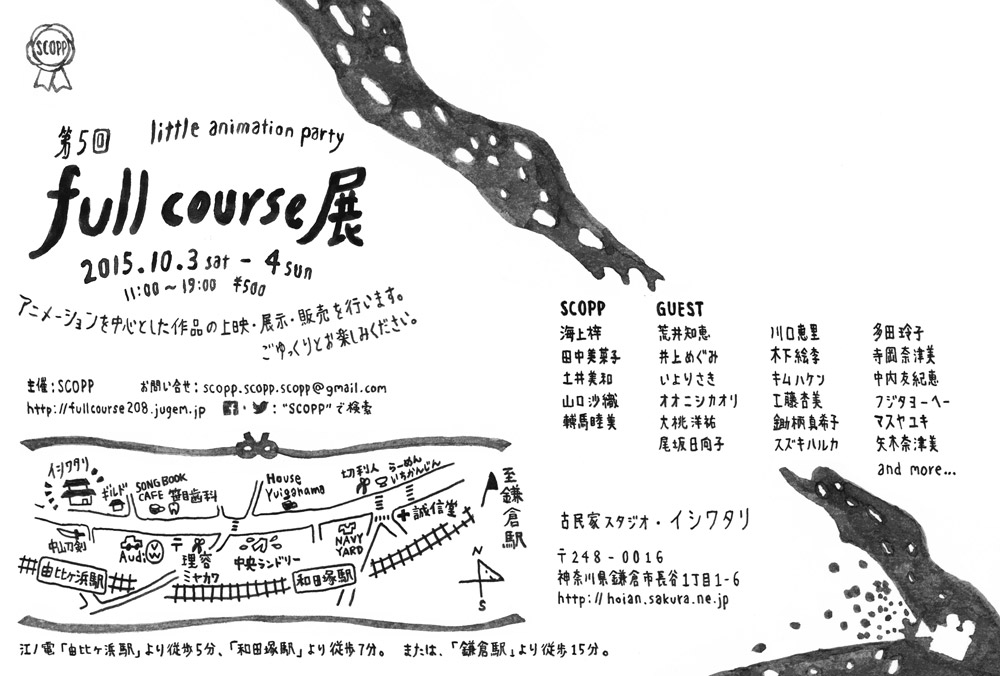 SCOPP
第5回
little animation party
full course展
2015.10.3 sat - 4 sun
11:00〜19:00 ¥500
アニメーションを中心とした作品の上映・展示・販売を行います。
ごゆっくりとお楽しみください。
主催:SCOPP お問い合せ:scopp.scopp.scopp@gmail.com
http://fullcourse208.jugem.jp f・:"SCOPP"で検索
イシワタリ
ギルド
SONG BOOK
CAFE
笹目歯科
House
Yuigahama
切利人
らーめん
いちかんじん
至鎌倉駅
誠信堂
中山刀剣
Audi
W
〒
理容
ミヤカワ
中央ランドリー
NAVY
YARD
由比ヶ浜駅
和田塚駅
N
S
江ノ電「由比ヶ浜駅」より徒歩5分、「和田塚駅」より徒歩7分。 または、「鎌倉駅」より徒歩15分。
SCOPP
海上梓
田中美菜子
土井美和
山口沙織
輪馬睦美
GUEST
荒井知恵
井上めぐみ
いよりさき
オオニシカオリ
大桃洋祐
尾坂日向子
川口恵里
木下絵李
キムハケン
工藤杏美
鋤柄真希子
スズキハルカ
多田玲子
寺岡奈津美
中内友紀恵
フジタヨーヘー
マスヤユキ
矢木奈津美
and more...
古民家スタジオ・イシワタリ
〒248-0016
神奈川県鎌倉市長谷1丁目1-6
http://hoian.sakura.ne.jp